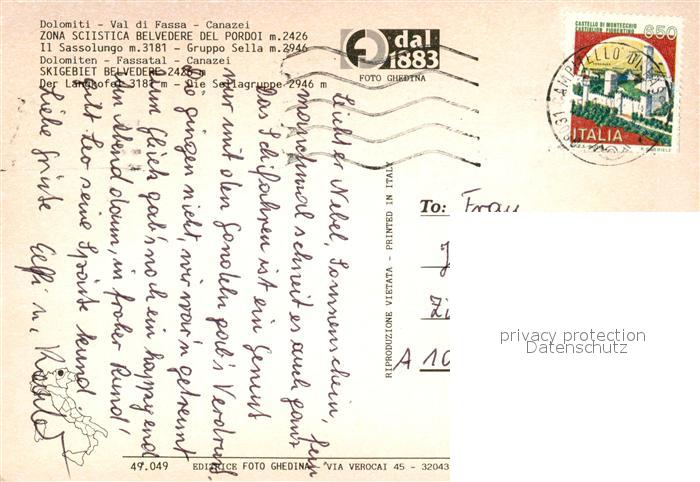 Dolomiti - Val di Fassa - Canazei
ZONA SCIISTICA BELVEDERE DEL PORDOI m.2426
Il Sassolungo m.3181 - Gruppo Sella m.2946
Dolomiten - Fassatal - Canazei
SKIGEBIET BELVEDERE 2426 m
Der Langkofel 3181 m - Die Sellagruppe 2946 m
dal
1883
FOTO GHEDINA
CASTELLO DI MONTECCHIO
CASTIGLION FIORENTINO
650
ITALIA
Leichter Nebel, Sonnenschein,
manchmal schneit es auch ganz fein
das Schifahren ist ein Genuß
nur mit den Gondeln gab's Verdruß.
gingen nicht, wir war'n getrennt
zum Glück gab's noch ein happy end
am Abend dann, in froher Rund'
tut Leo seine Späße kund
Liebe Grüße Elfi u.
RIPRODUZIONE VIETATA - PRINTED IN ITALY
To: Frau
J
Zi
A 10
privacy protection
Datenschutz
49.049 EDITRICE FOTO GHEDINA, VIA VEROCAI 45 - 32043